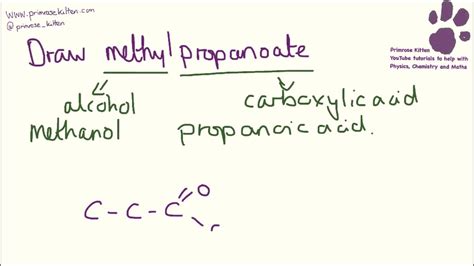 www.primrosekitten.com
@primrose_kitten
Draw methyl propanoate
alcohol carboxylic acid
methanol propanoic acid.
Primrose Kitten
YouTube tutorials to help with
Physics, Chemistry and Maths
C - C - C = O